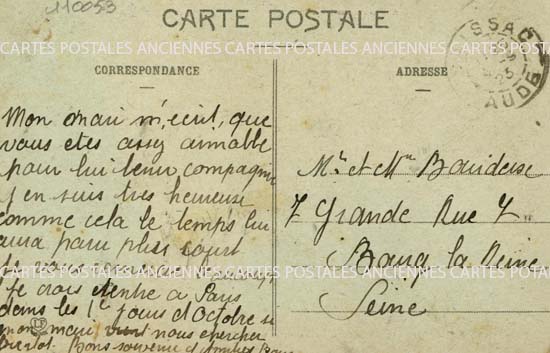 110053
CARTE POSTALE
CARTES POSTALES ANCIENNES CARTES POSTALES ANCIENNES CARTES POSTALES
CORRESPONDANCE
Mon mari m'ecrit, que
vous etes assez aimable
pour lui tenir compagnie
j'en suis tres heureuse
comme cela le temps lui
aura paru plus court
CARTES POSTALES ANCIENNES CARTES POSTALES ANCIENNES CARTES POSTALES
Je crois rentré a Paris
dans les 1e jours d'Octobre si
mon mari vient nous chercher
Bons souvenirs
ADRESSE
SSAC
AUDE
Mr et Mme
7 Grande Rue 7
Bourg la Reine
Seine